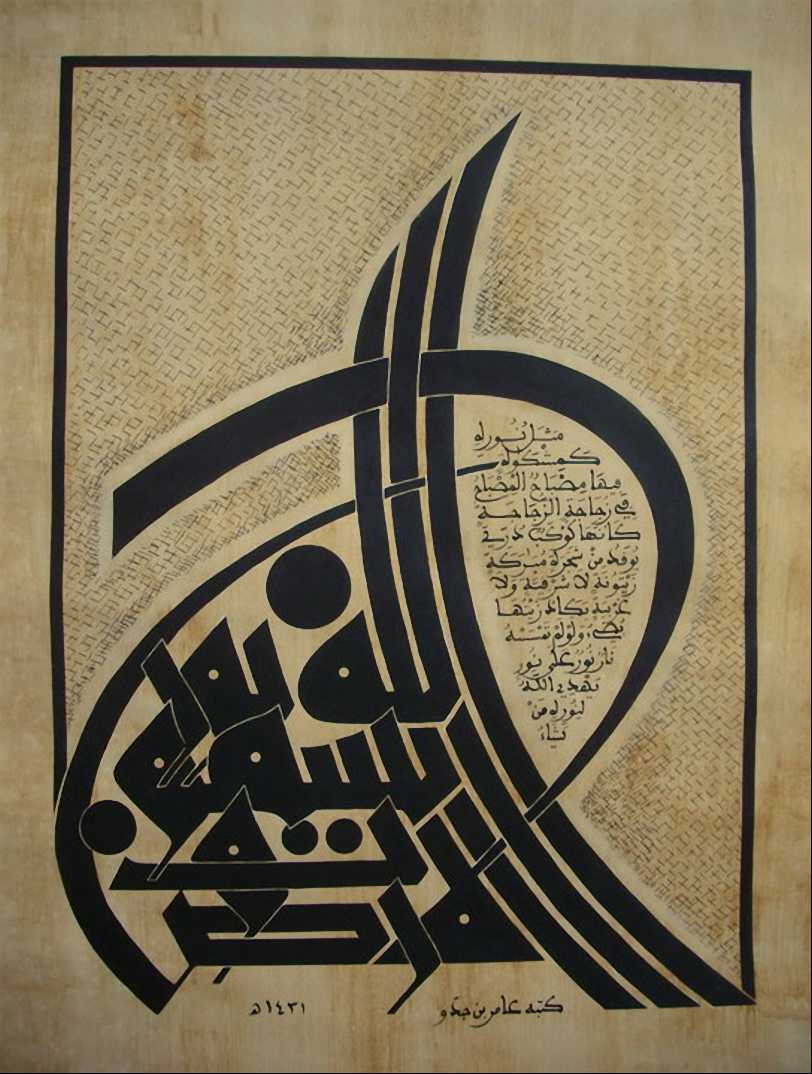 الله نور السموات والأرض
مَثَلُ نُورِهِ
كَمِشْكَوٰةٍ
فيها مِصْبَاحٌ المِصْبَاحُ
في زجاجة الزجاجة
كأنها كوكب دري
يوقد من شجرة مباركة
زيتونة لا شرقية ولا
غربية يكاد زيتها
يضيء ولو لم تمسسه
نار نور على نور
يهدي الله
لنوره من
يشاء
كتبه عامر بن جدو
١٤٣١هـ